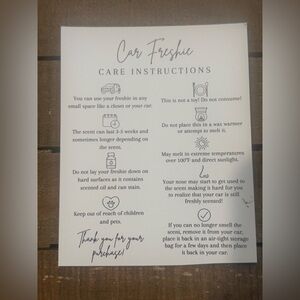 Car Freshie
CARE INSTRUCTIONS
You can use your freshie in any
small space like a closet or your car.
The scent can last 2-5 weeks and
sometimes longer depending on
the scent.
Do not lay your freshie down on
hard surfaces as it contains
scented oil and can stain.
Keep out of reach of children
and pets.
Thank you for your
purchase!
This is not a toy! Do not consume!
Do not place this in a wax warmer
or attempt to melt it.
May melt in extreme temperatures
over 100°F and direct sunlight.
Your nose may start to get used to
the scent making it hard for you
to realize that your car is still
freshly scented!
If you can no longer smell the
scent, remove it from your car,
place it back in an air-tight storage
bag for a few days and then place
it back in your car.